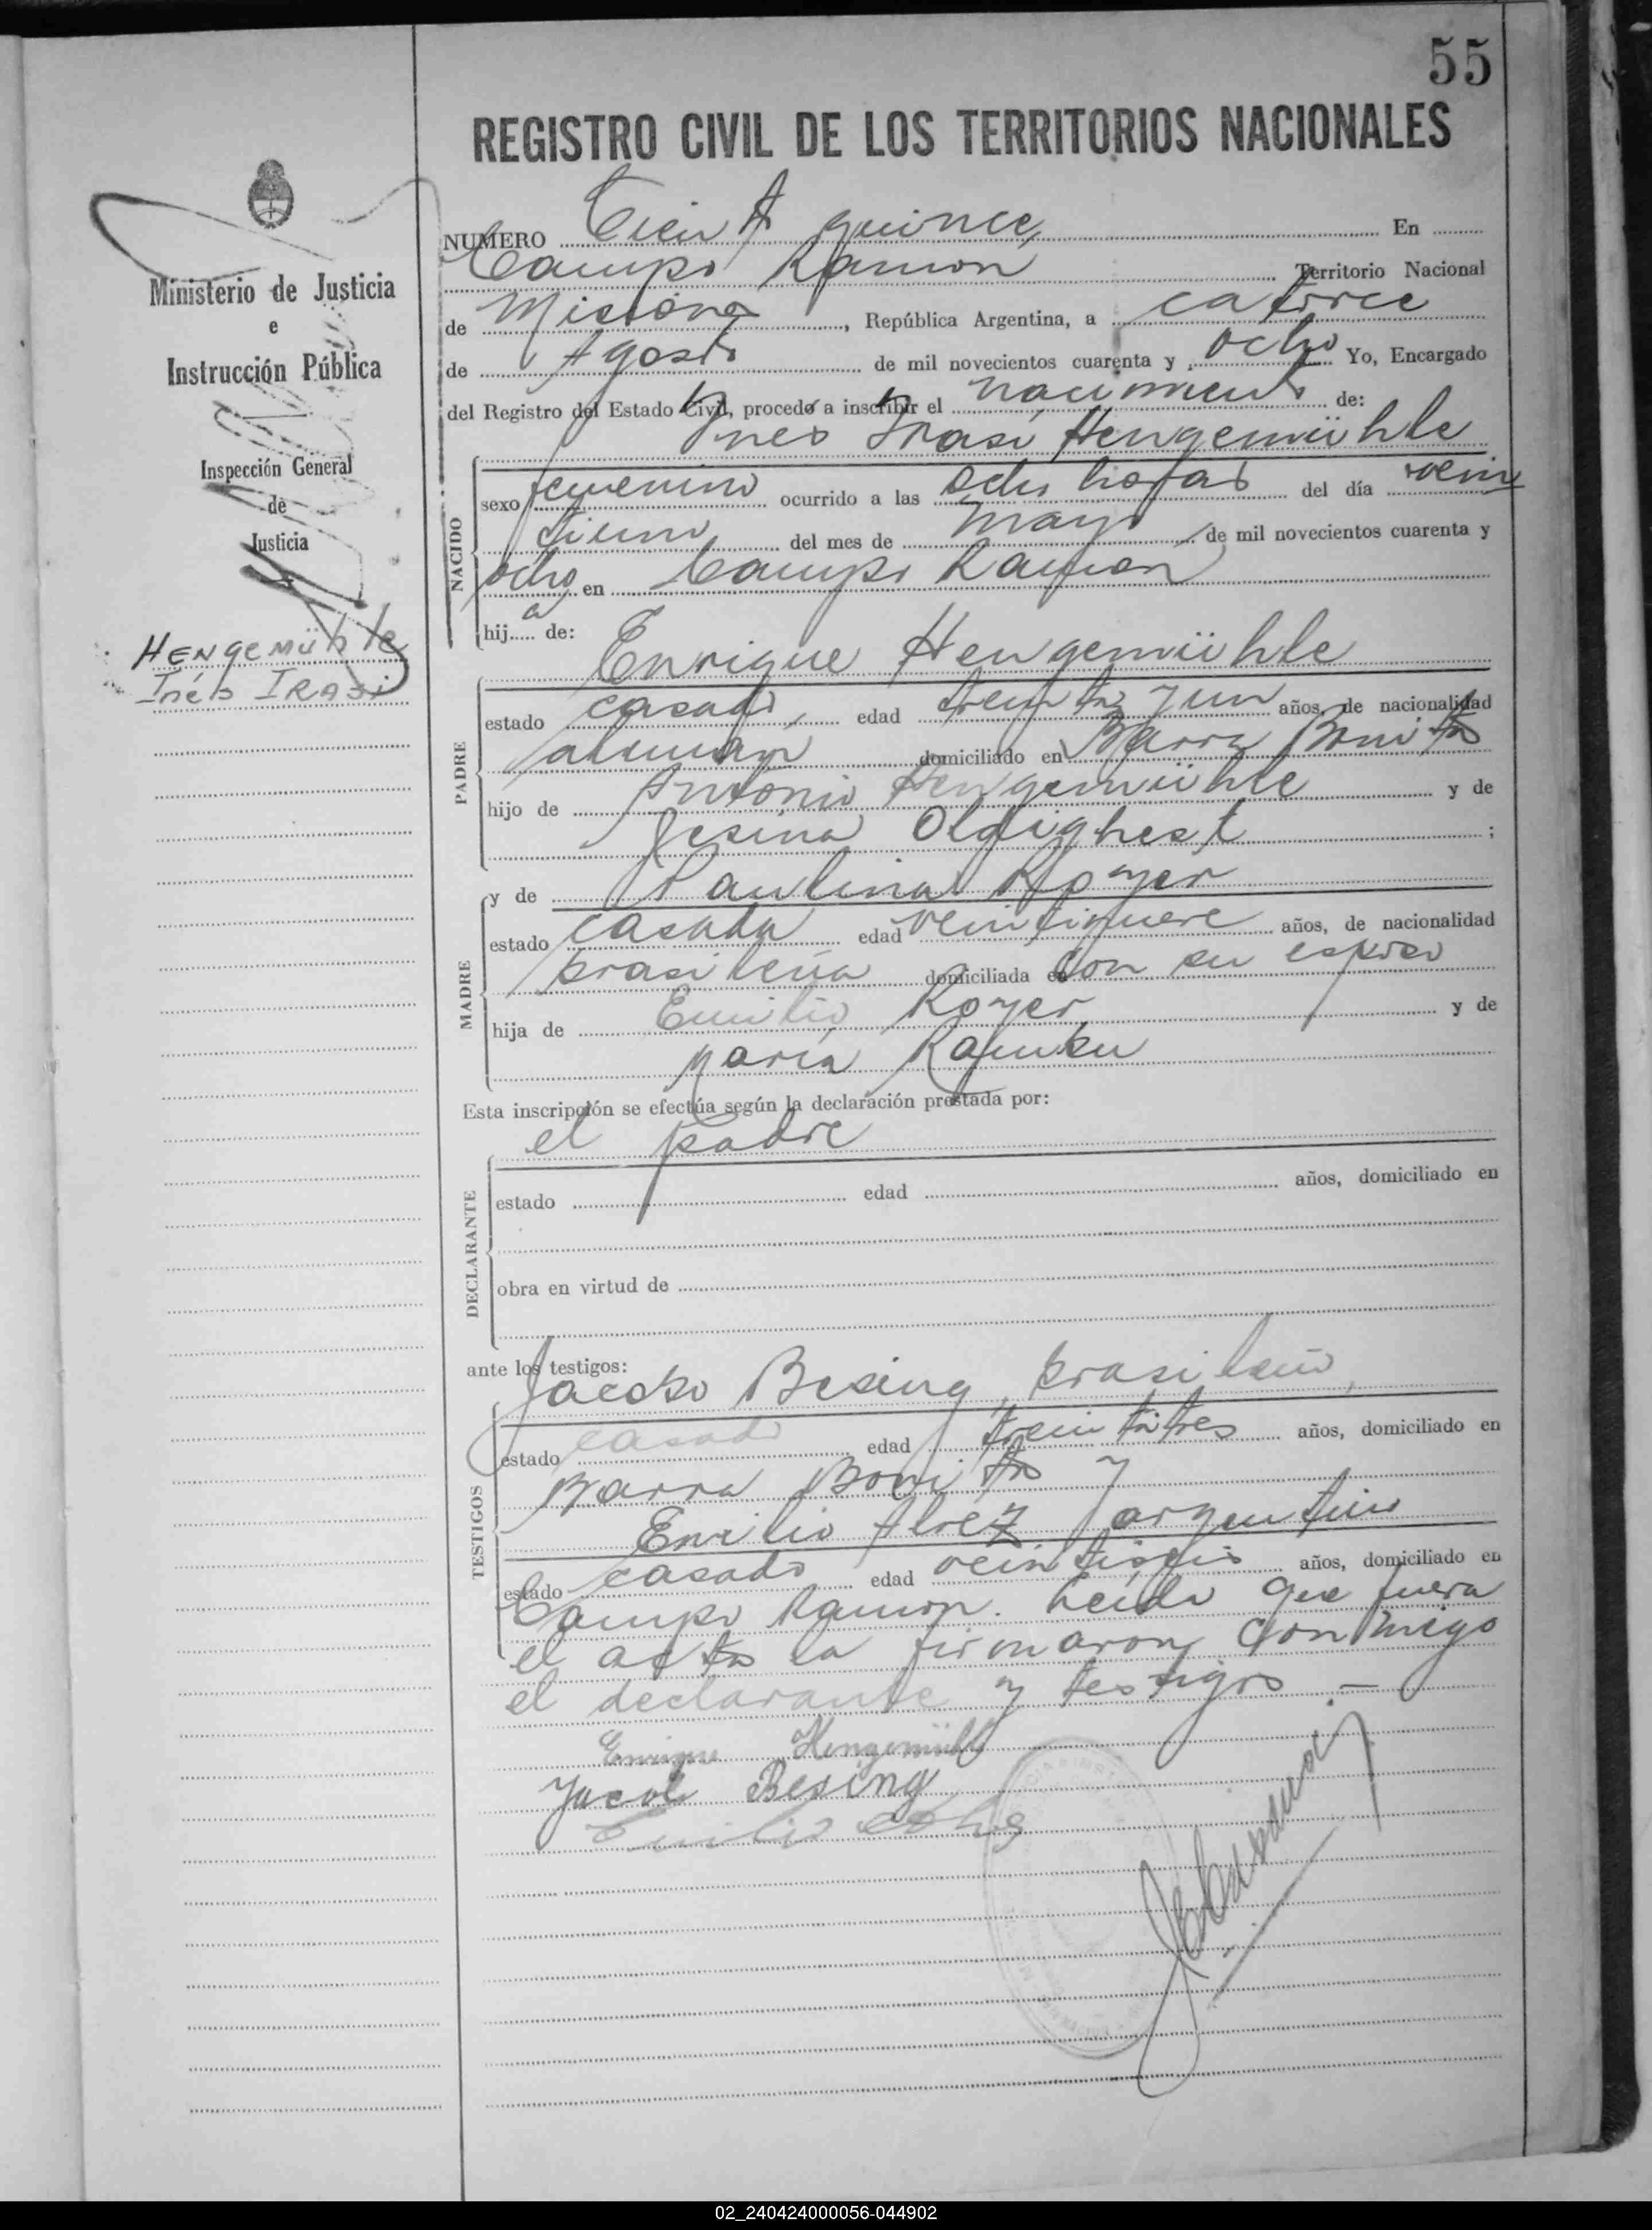 55
REGISTRO CIVIL DE LOS TERRITORIOS NACIONALES
Ministerio de Justicia
e
Instrucción Pública
Inspección General
de
Justicia
HENgemühle
Inés IRASi
NUMERO Ciento quince En
Campo Ramon Territorio Nacional
de Misiones, República Argentina, a catorce
de Agosto de mil novecientos cuarenta y ocho Yo, Encargado
del Registro del Estado Civil, procedo a inscribir el nacimiento de:
Ines Irasi Hengemühle
NACIDO
sexo femenino ocurrido a las ocho horas del día vein
tiuno del mes de mayo de mil novecientos cuarenta y
ocho en Campo Ramon
hija de:
Enrique Hengemühle
PADRE
estado casado, edad treinta y un años, de nacionalidad
alemán domiciliado en Barra Bonita
hijo de Antonio Hengemühle y de
Jesina ;
y de Paulina Royer
MADRE
estado casada edad veintinueve años, de nacionalidad
brasileña domiciliada en con su esposo
hija de Emilio Royer y de
María
Esta inscripción se efectúa según la declaración prestada por:
el padre
DECLARANTE
estado edad años, domiciliado en
obra en virtud de
ante los testigos:
Jacobo Besing, brasileño,
TESTIGOS
estado casado edad treintitres años, domiciliado en
Barra Bonita y
Emilio Alvez argentino
estado casado edad veintiseis años, domiciliado en
Campo Ramon. Leida que fuera
el acta la firmaron conmigo
el declarante y testigos.-
Enrique Hengemühle
Jacob Besing
Emilio
02_240424000056-044902